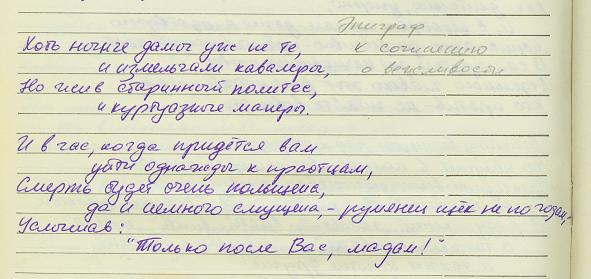 Эпиграф
к сочинению
о вежливости
Хоть нынче дамы уже не те,
и измельчали кавалеры,
Но жив старинный политес,
и куртуазные манеры.
И в час, когда придётся вам
уйти однажды к праотцам,
Смерть будет очень польщена,
да и немного смущена, - румянец щёк не по годам, -
Услышав:
"Только после Вас, мадам!"